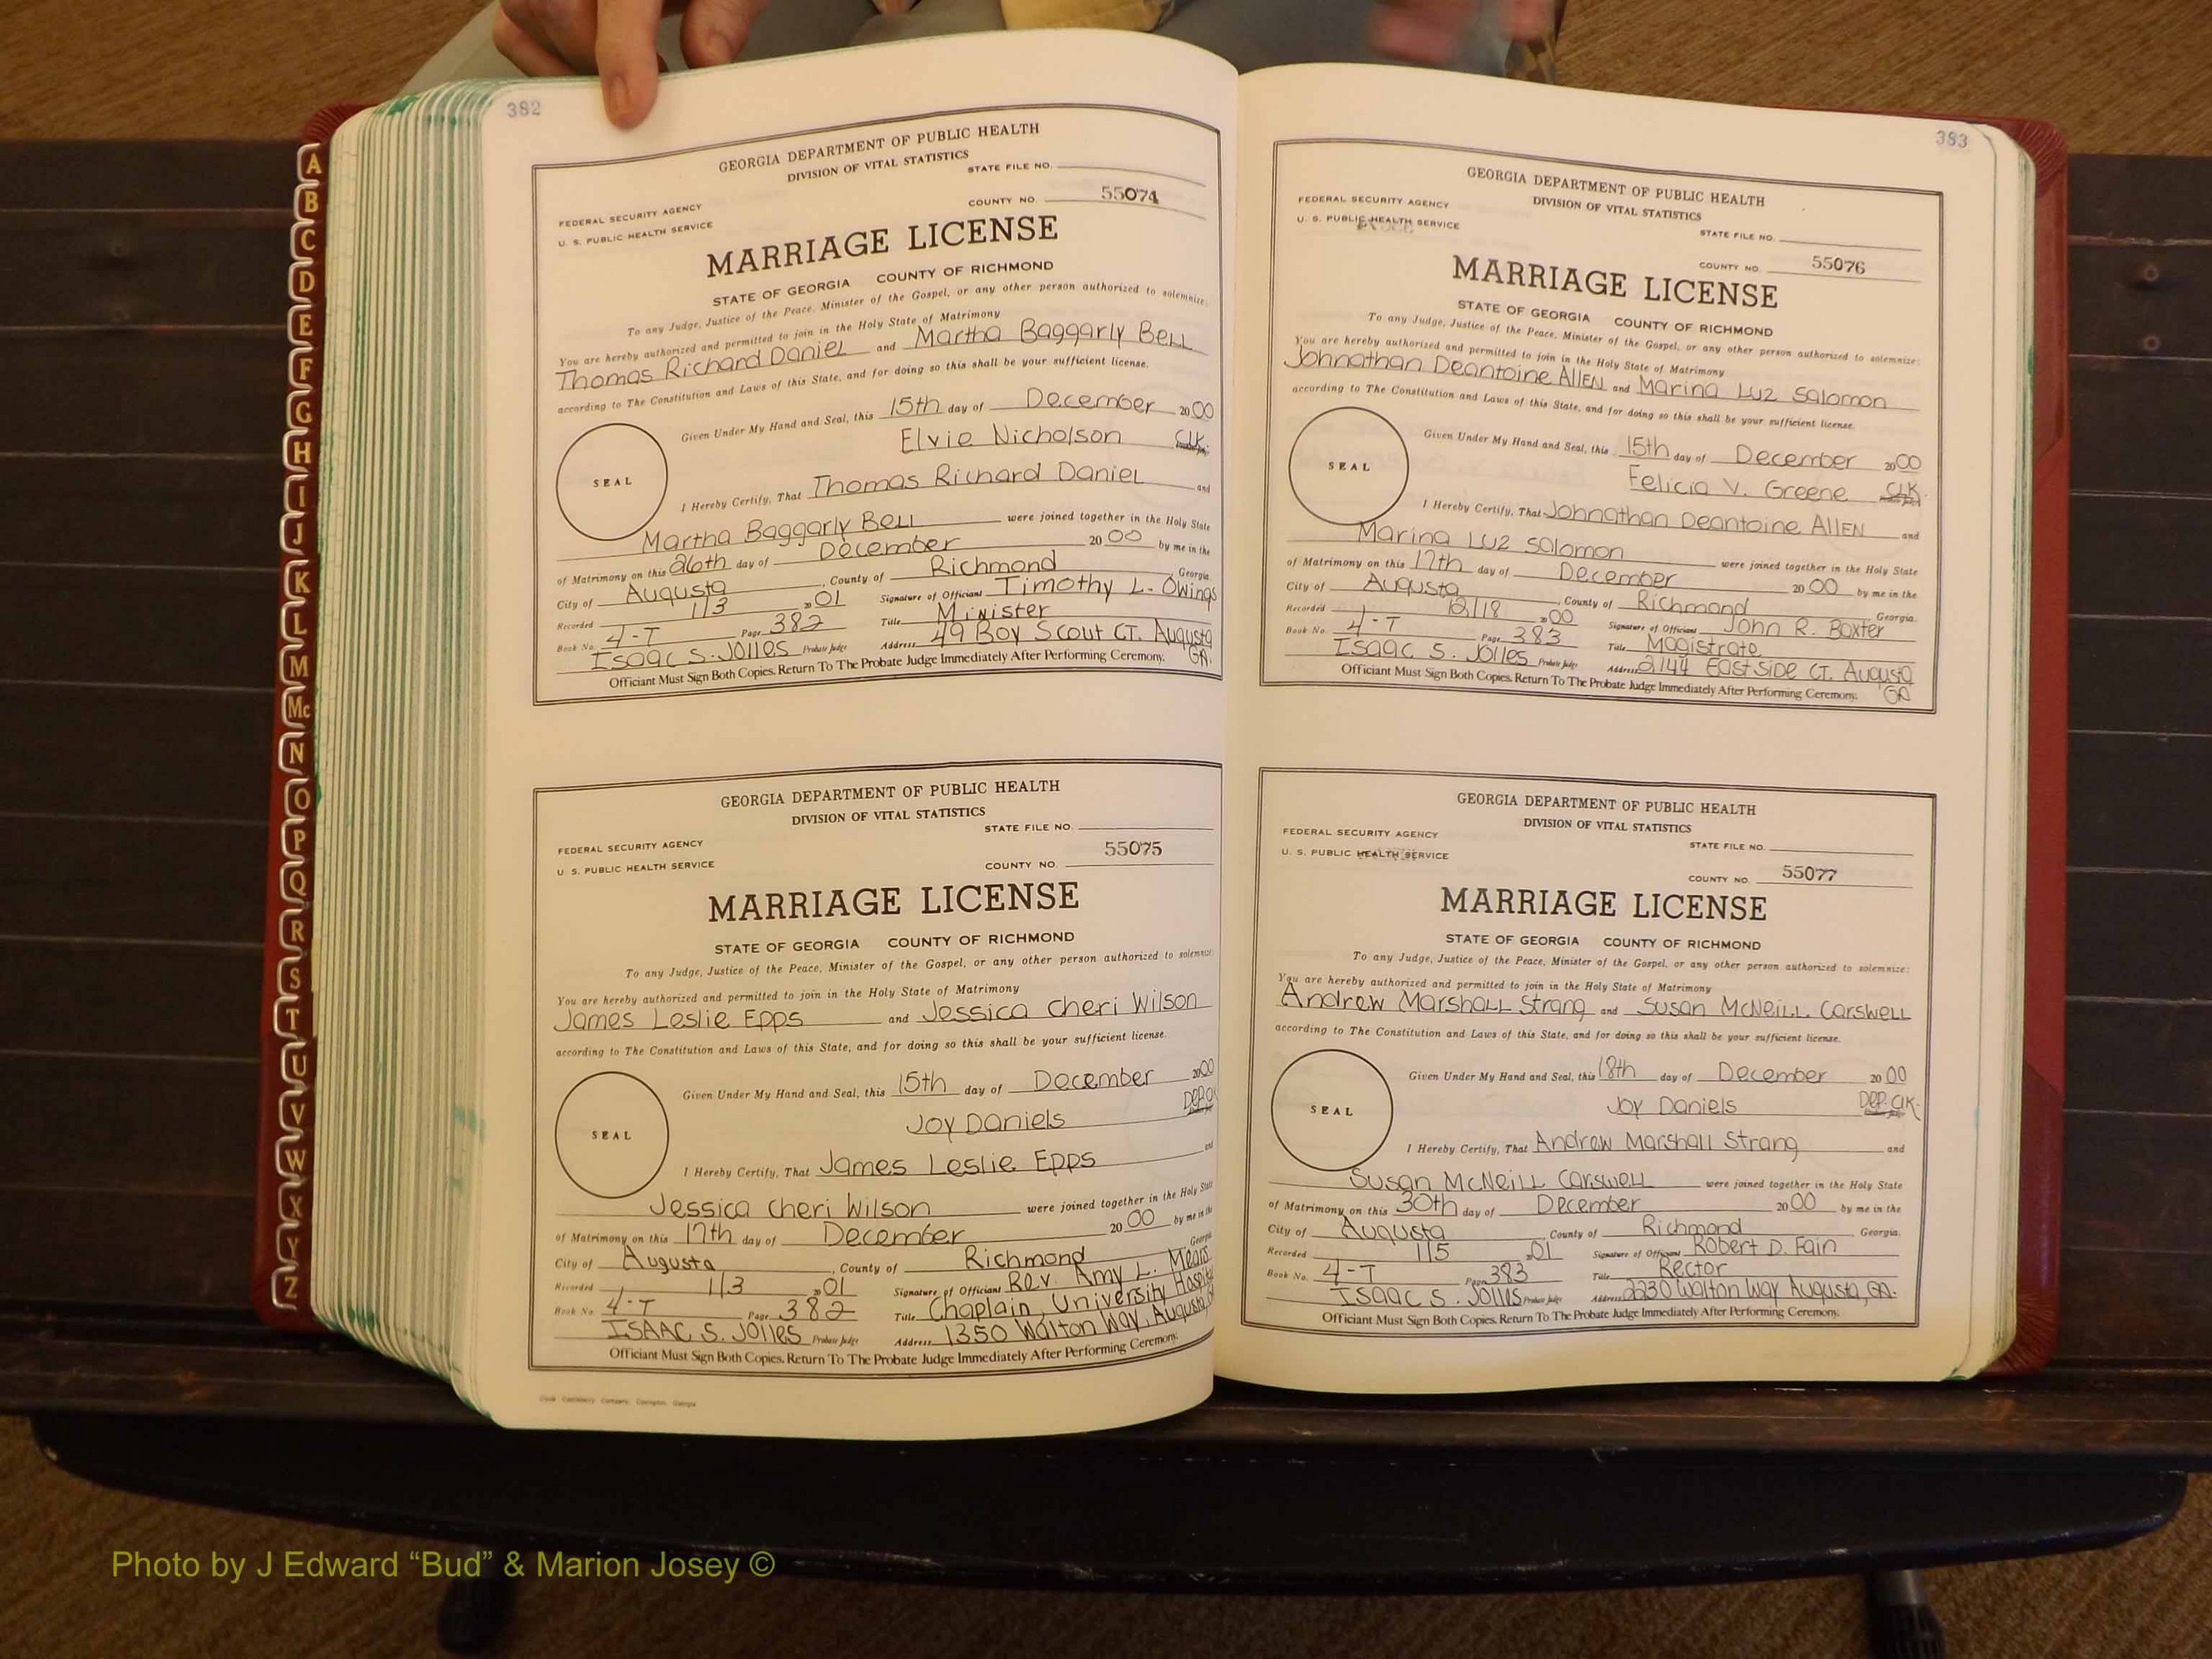 382
GEORGIA DEPARTMENT OF PUBLIC HEALTH
DIVISION OF VITAL STATISTICS
STATE FILE NO.
FEDERAL SECURITY AGENCY
U. S. PUBLIC HEALTH SERVICE
COUNTY NO. 55074
MARRIAGE LICENSE
STATE OF GEORGIA COUNTY OF RICHMOND
To any Judge, Justice of the Peace, Minister of the Gospel, or any other person authorized to solemnize:
You are hereby authorized and permitted to join in the Holy State of Matrimony
Thomas Richard Daniel and Martha Baggarly Bell
according to The Constitution and Laws of this State, and for doing so this shall be your sufficient license.
Given Under My Hand and Seal, this 15th day of December 2000
Elvie Nicholson Clk.
SEAL
I Hereby Certify, That Thomas Richard Daniel and
Martha Baggarly Bell were joined together in the Holy State
of Matrimony on this 26th day of December 2000 by me in the
City of Augusta, County of Richmond Georgia.
Recorded 1/3 2001 Signature of Officiant Timothy L. Owings
Book No. 4-T Page 382 Title Minister
Isaac S. Jolles Probate Judge Address 49 Boy Scout CT. Augusta GA.
Officiant Must Sign Both Copies. Return To The Probate Judge Immediately After Performing Ceremony.
GEORGIA DEPARTMENT OF PUBLIC HEALTH
DIVISION OF VITAL STATISTICS
STATE FILE NO.
FEDERAL SECURITY AGENCY
U. S. PUBLIC HEALTH SERVICE
COUNTY NO. 55075
MARRIAGE LICENSE
STATE OF GEORGIA COUNTY OF RICHMOND
To any Judge, Justice of the Peace, Minister of the Gospel, or any other person authorized to solemnize:
You are hereby authorized and permitted to join in the Holy State of Matrimony
James Leslie Epps and Jessica Cheri Wilson
according to The Constitution and Laws of this State, and for doing so this shall be your sufficient license.
Given Under My Hand and Seal, this 15th day of December 2000
Joy Daniels Dep.
SEAL
I Hereby Certify, That James Leslie Epps and
Jessica Cheri Wilson were joined together in the Holy State
of Matrimony on this 17th day of December 2000 by me in the
City of Augusta, County of Richmond Georgia
Recorded 1/3 2001 Signature of Officiant Rev. Amy L. Mears
Book No. 4-T Page 382 Title Chaplain, University Hospital
ISAAC S. Jolles Probate Judge Address 1350 Walton Way, Augusta,
Officiant Must Sign Both Copies. Return To The Probate Judge Immediately After Performing Ceremony.
383
GEORGIA DEPARTMENT OF PUBLIC HEALTH
DIVISION OF VITAL STATISTICS
FEDERAL SECURITY AGENCY
U. S. PUBLIC HEALTH SERVICE
STATE FILE NO.
COUNTY NO. 55076
MARRIAGE LICENSE
STATE OF GEORGIA COUNTY OF RICHMOND
To any Judge, Justice of the Peace, Minister of the Gospel, or any other person authorized to solemnize:
You are hereby authorized and permitted to join in the Holy State of Matrimony
Johnathan Deantoine Allen and Marina Luz Salomon
according to The Constitution and Laws of this State, and for doing so this shall be your sufficient license.
Given Under My Hand and Seal, this 15th day of December 2000
Felicia V. Greene Clk.
SEAL
I Hereby Certify, That Johnathan Deantoine Allen and
Marina Luz Salomon were joined together in the Holy State
of Matrimony on this 17th day of December 2000 by me in the
City of Augusta, County of Richmond Georgia.
Recorded 12/18 2000 Signature of Officiant John R. Baxter
Book No. 4-T Page 383 Title Magistrate
Isaac S. Jolles Probate Judge Address 2144 East Side CT. Augusta GA
Officiant Must Sign Both Copies. Return To The Probate Judge Immediately After Performing Ceremony.
GEORGIA DEPARTMENT OF PUBLIC HEALTH
DIVISION OF VITAL STATISTICS
FEDERAL SECURITY AGENCY
U. S. PUBLIC HEALTH SERVICE
STATE FILE NO.
COUNTY NO. 55077
MARRIAGE LICENSE
STATE OF GEORGIA COUNTY OF RICHMOND
To any Judge, Justice of the Peace, Minister of the Gospel, or any other person authorized to solemnize:
You are hereby authorized and permitted to join in the Holy State of Matrimony
Andrew Marshall Strang and Susan McNeill Carswell
according to The Constitution and Laws of this State, and for doing so this shall be your sufficient license.
Given Under My Hand and Seal, this 18th day of December 2000
Joy Daniels Dep. Clk.
SEAL
I Hereby Certify, That Andrew Marshall Strang and
Susan McNeill Carswell were joined together in the Holy State
of Matrimony on this 30th day of December 2000 by me in the
City of Augusta, County of Richmond Georgia.
Recorded 1/5 2001 Signature of Officiant Robert D. Fain
Book No. 4-T Page 383 Title Rector
Isaac S. Jolles Probate Judge Address 2230 Walton Way Augusta, GA.
Officiant Must Sign Both Copies. Return To The Probate Judge Immediately After Performing Ceremony.
A
B
C
D
E
F
G
H
I
J
K
L
M
Mc
N
O
P
Q
R
S
T
U
V
W
X
Y
Z
Photo by J Edward “Bud” & Marion Josey ©